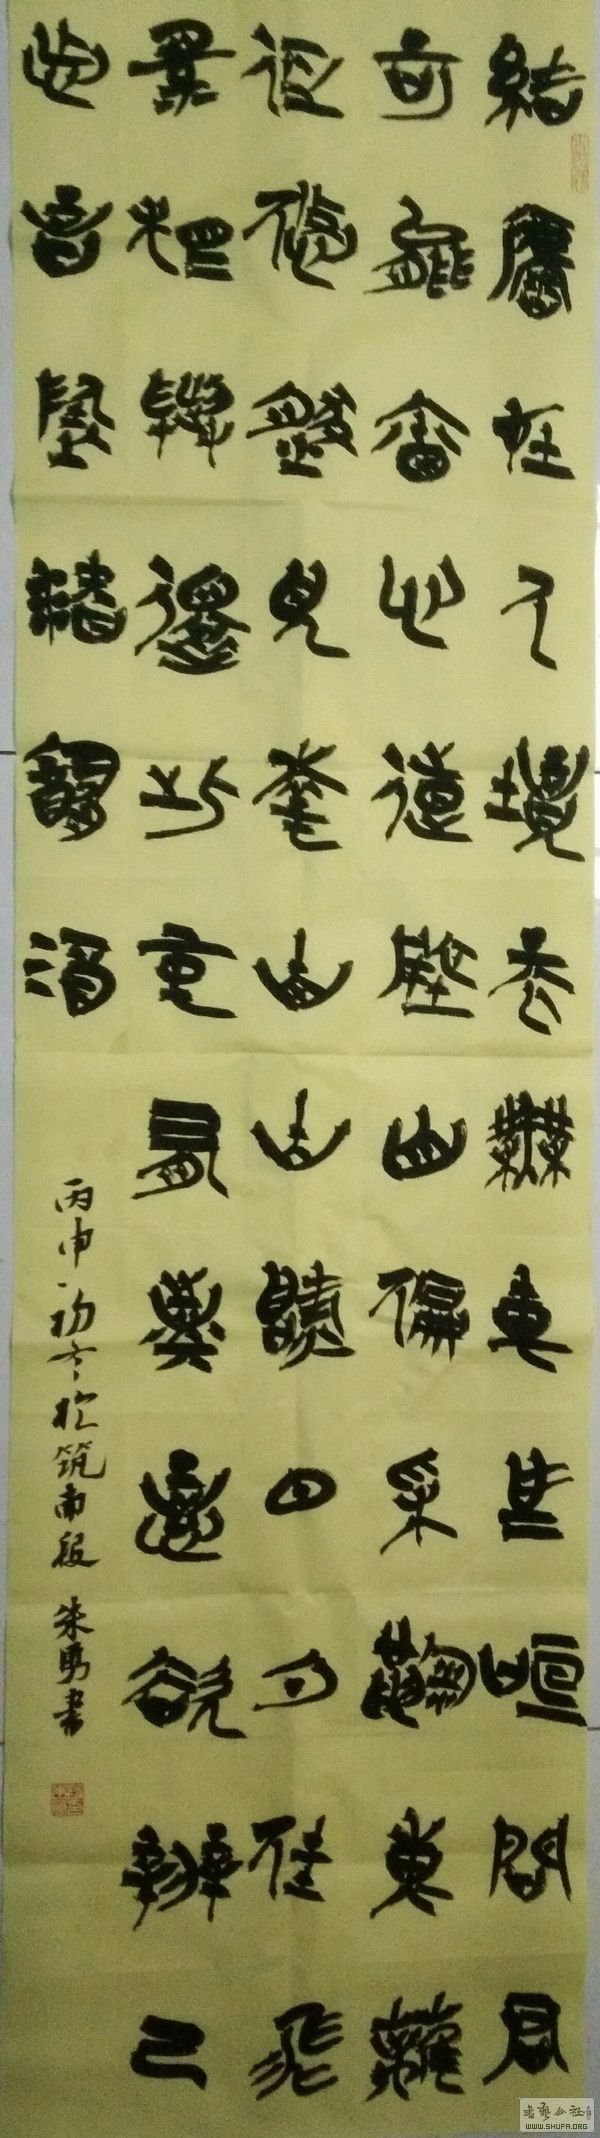 結廬在人境而無車馬喧問君
何能爾心遠地自偏采菊東籬
下悠然見南山山氣日夕佳飛
鳥相與還此中有真意欲辨已
忘言
丙申初冬於筑南 朱勇書
书艺公社
WWW.SHUFA.ORG